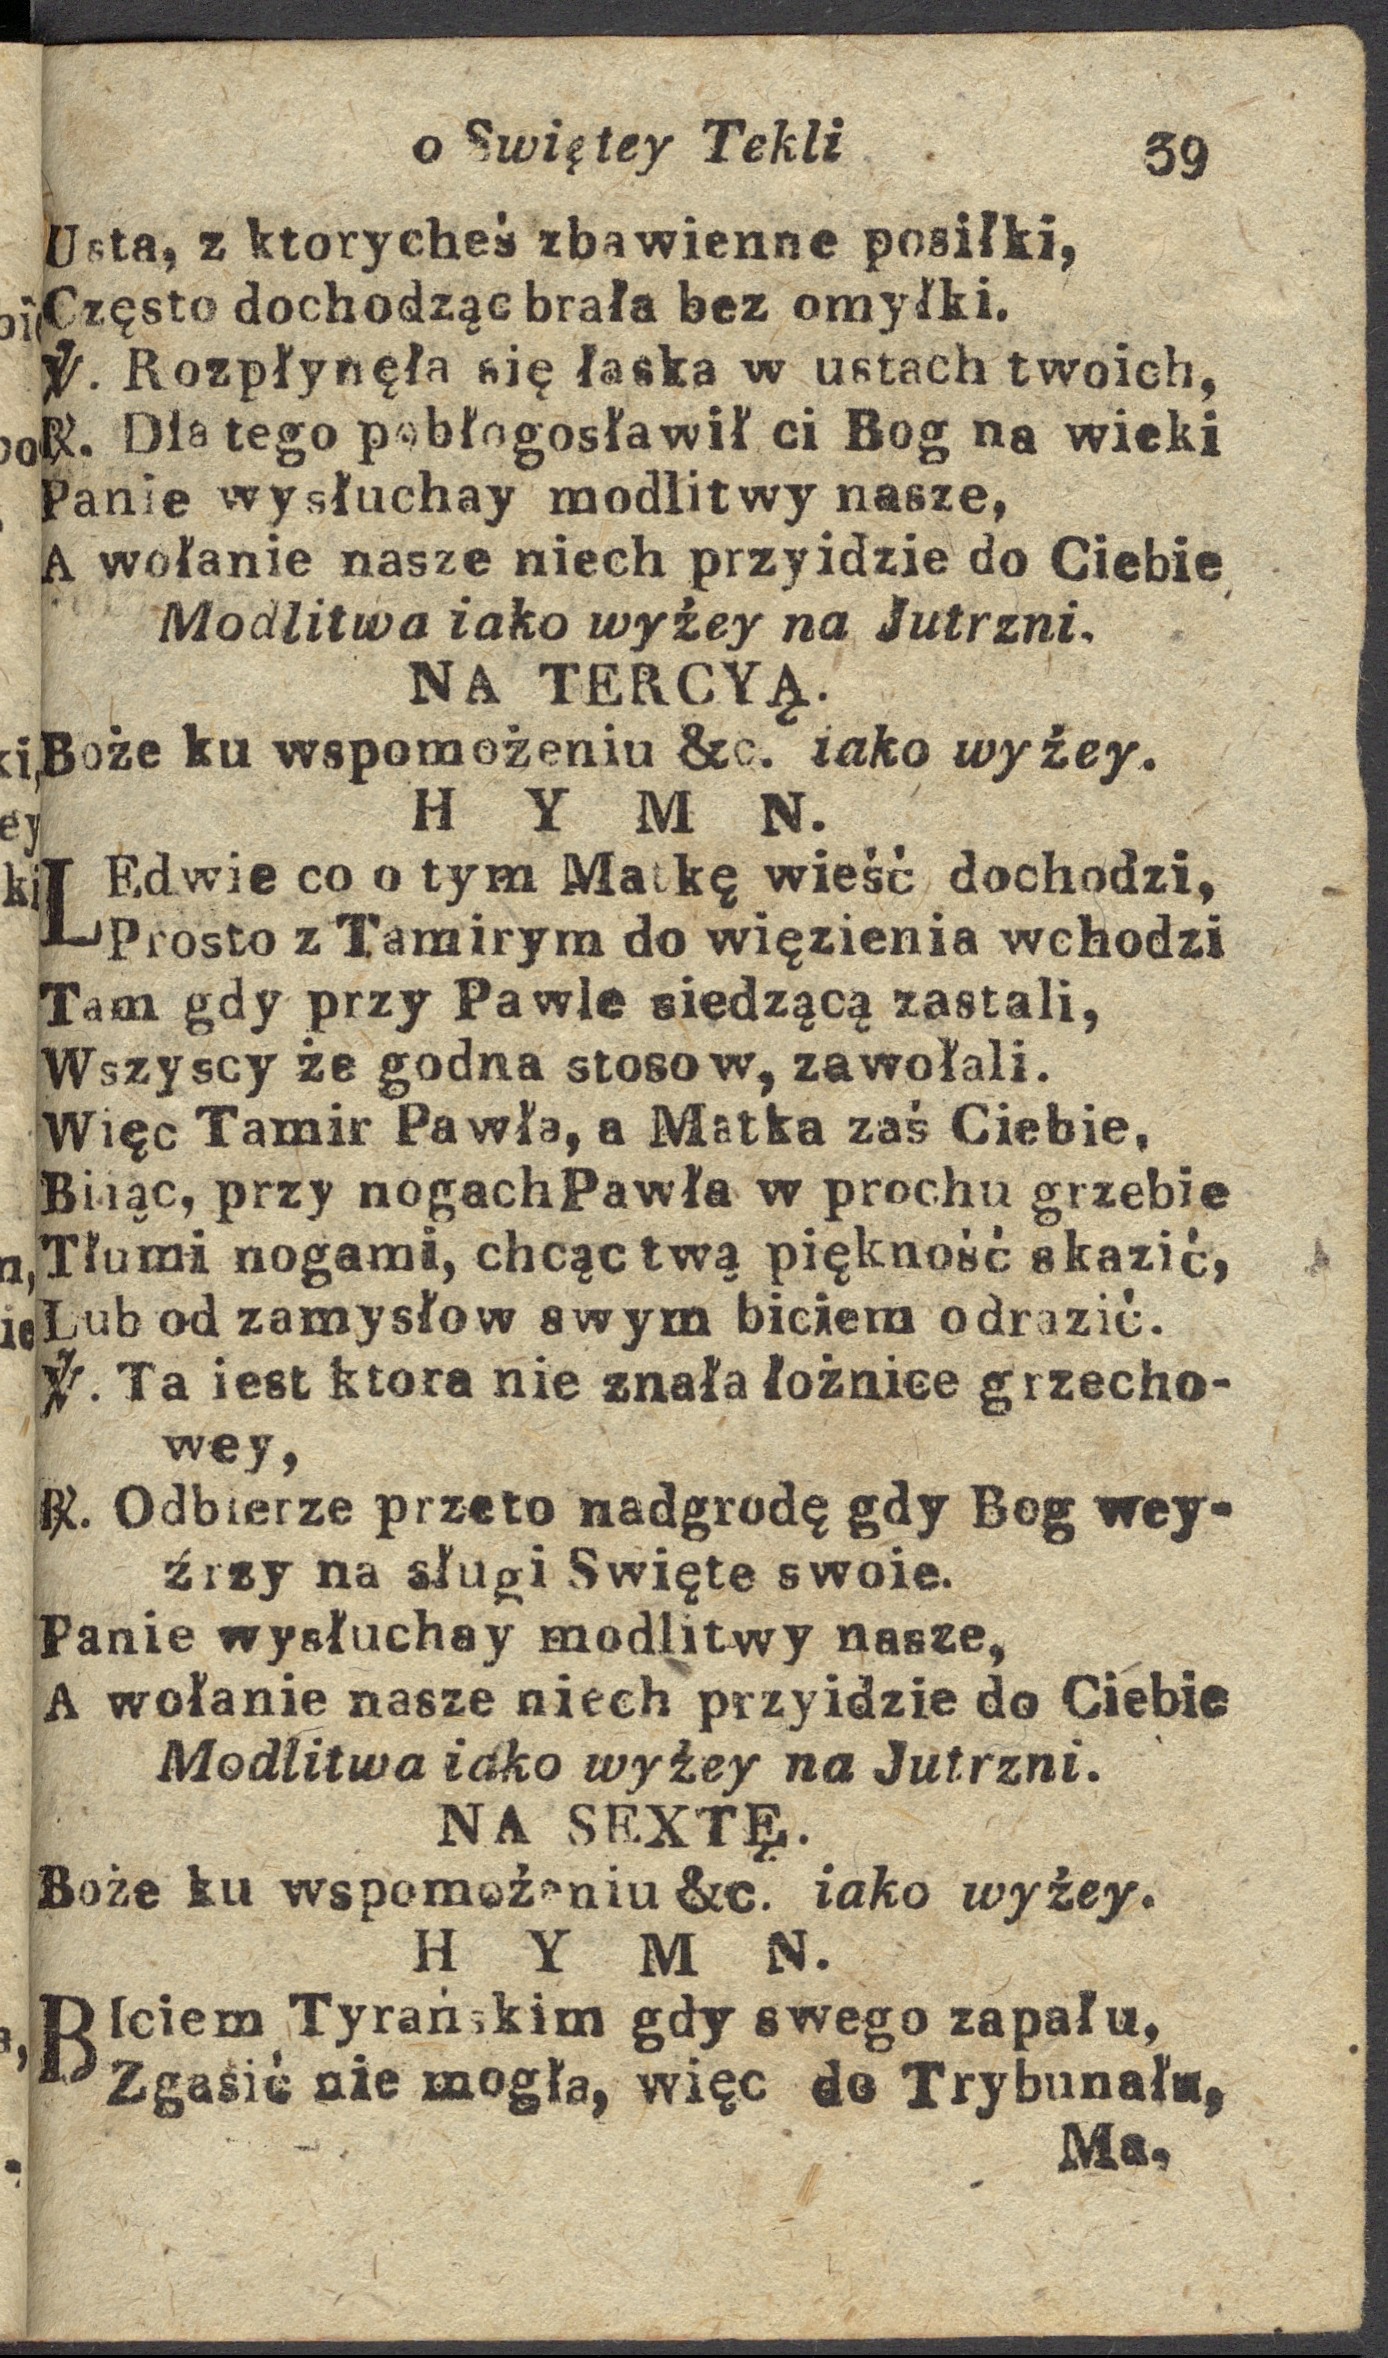 o Swiętey Tekli 39
Usta, z ktorycheś zbawienne posiłki,
Często dochodząc brała bez omyłki.
℣. Rozpłynęła się łaska w ustach twoich,
℟. Dla tego pobłogosławił ci Bog na wieki
Panie wysłuchay modlitwy nasze,
A wołanie nasze niech przyidzie do Ciebie
Modlitwa iako wyżey na Jutrzni.
NA TERCYĄ.
Boże ku wspomożeniu &c. iako wyżey.
H Y M N.
LEdwie co o tym Matkę wieść dochodzi,
Prosto z Tamirym do więzienia wchodzi
Tam gdy przy Pawle siedzącą zastali,
Wszyscy że godna stosow, zawołali.
Więc Tamir Pawła, a Matka zaś Ciebie,
Biiąc, przy nogach Pawła w prochu grzebie
Tłumi nogami, chcąc twą piękność skazić,
Lub od zamysłow swym biciem odrazić.
℣. Ta iest ktora nie znała łożnice grzecho-
wey,
℟. Odbierze przeto nadgrodę gdy Bog wey-
źrzy na sługi Swięte swoie.
Panie wysłuchay modlitwy nasze,
A wołanie nasze niech przyidzie do Ciebie
Modlitwa iako wyżey na Jutrzni.
NA SEXTĘ.
Boże ku wspomożeniu &c. iako wyżey.
H Y M N.
BIciem Tyrańskim gdy swego zapału,
Zgasić nie mogła, więc do Trybunału,
Ma,